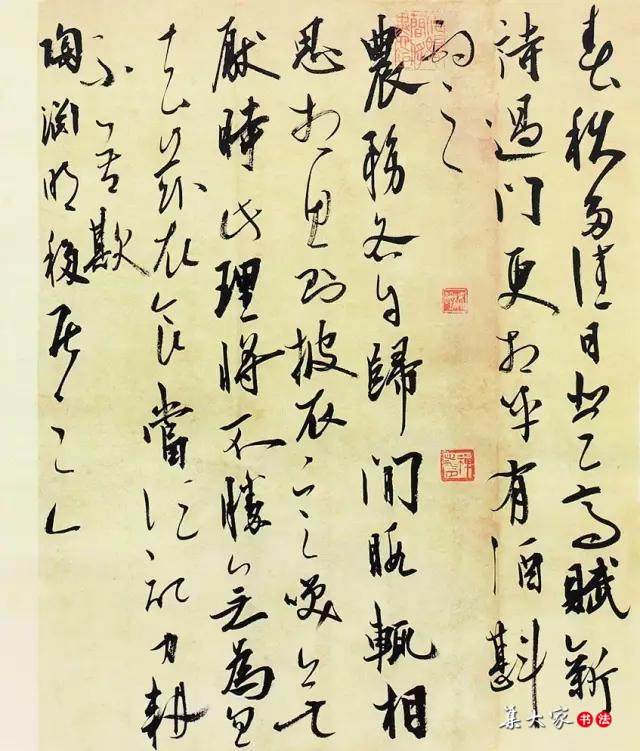 春秋多佳日登高賦新
詩過門更相呼有酒斟
酌之
農務各自歸閒暇輒相
思相思則披衣言笑無
厭時此理將不勝無為忽
去茲衣食當須紀力耕
不吾欺
陶淵明移居
集大家书法